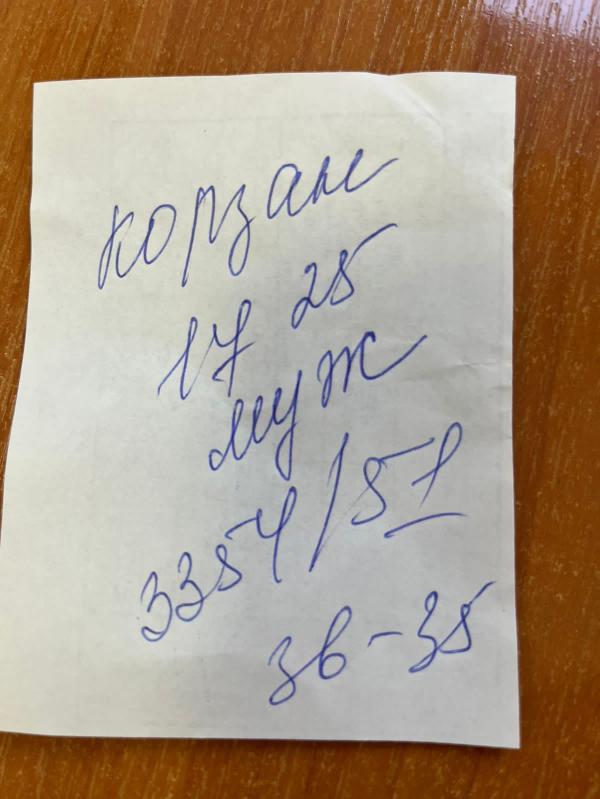 Корзан
17 25
муж
3354/51
36-35